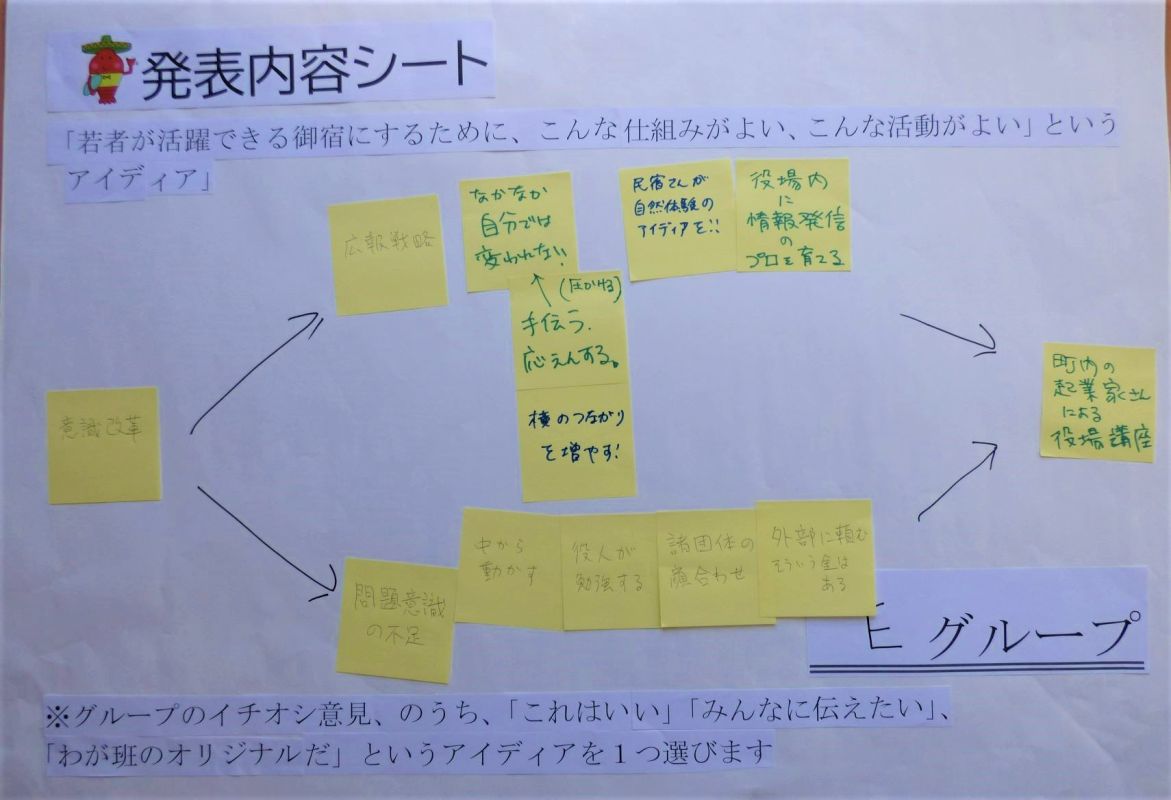 発表内容シート
「若者が活躍できる御宿にするために、こんな仕組みがよい、こんな活動がよい」という
アイディア」
広報戦略
なかなか
自分では
変われない!
民宿さんが
自然体験の
アイディアを!!
役場内
に
情報発信
の
プロを育てる
(圧かける)
手伝う.
応えんする。
横のつながり
を増やす!
意識改革
町内の
起業家さん
による
役場講座
問題意識
の不足
中から
動かす
役人が
勉強する
諸団体の
顔合わせ
外部に頼む
そういう金は
ある
Eグループ
※グループのイチオシ意見、のうち、「これはいい」「みんなに伝えたい」、
「わが班のオリジナルだ」というアイディアを1つ選びます